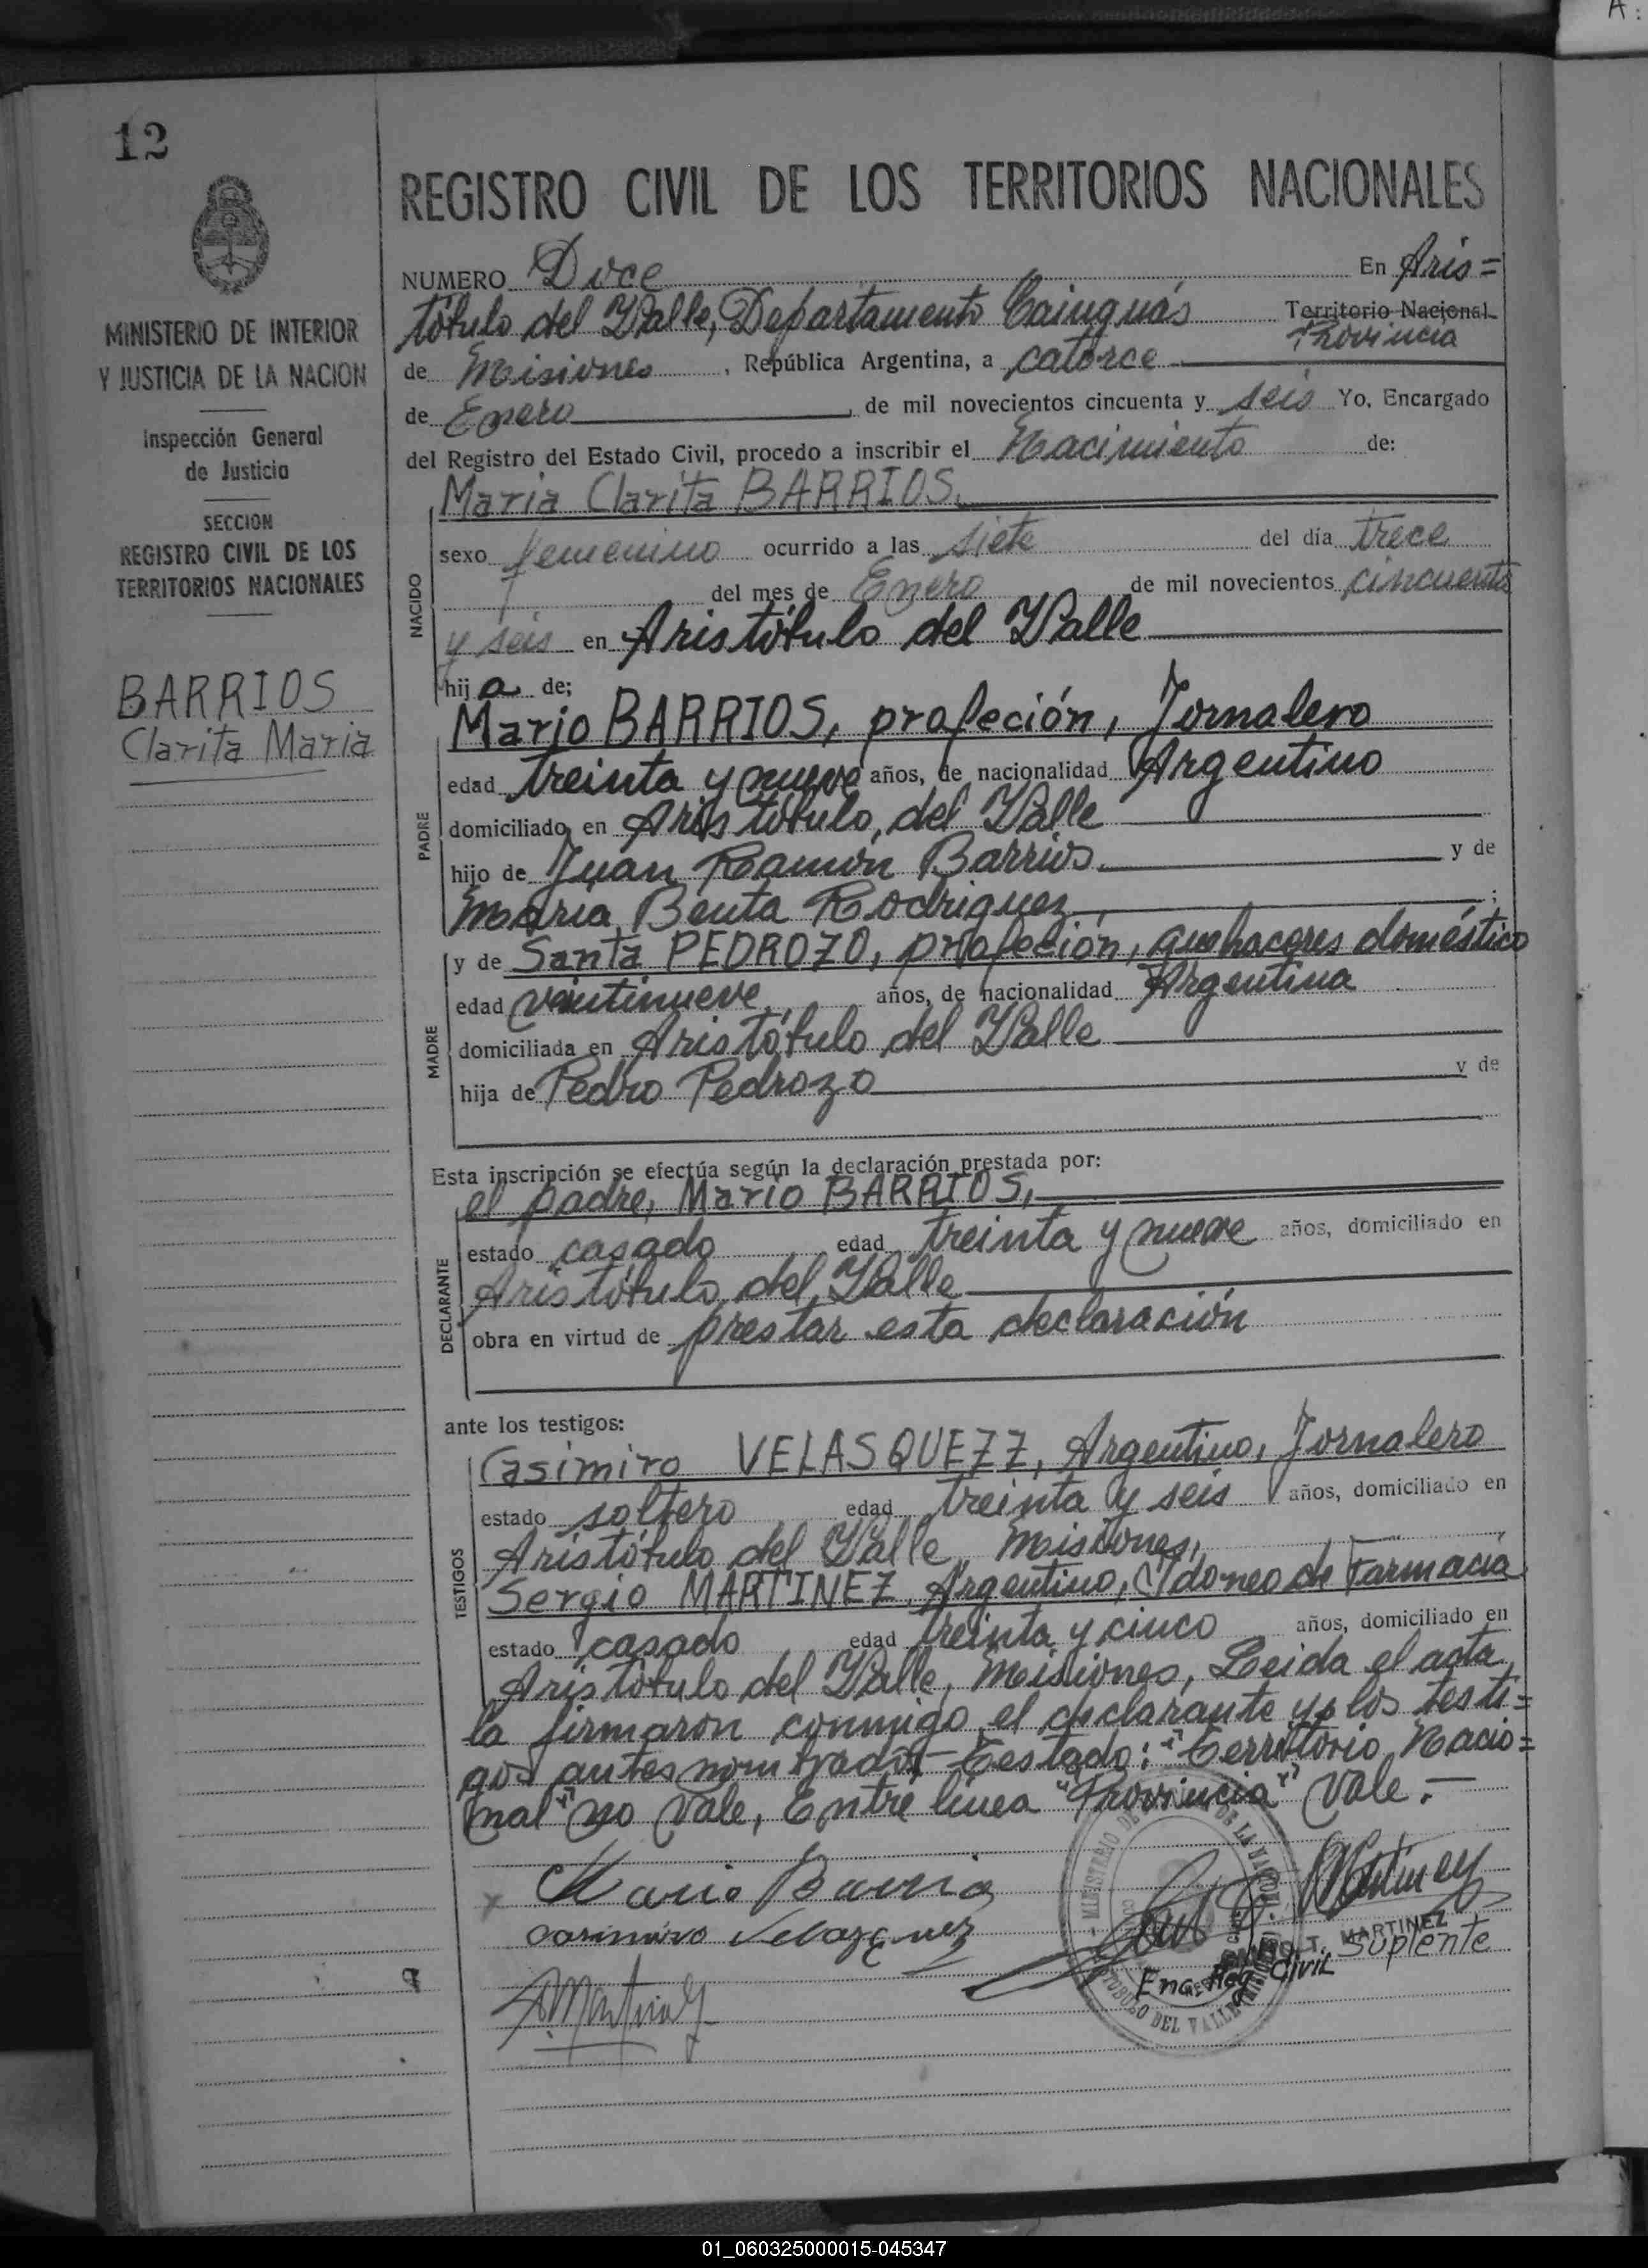 12
MINISTERIO DE INTERIOR
Y JUSTICIA DE LA NACION
Inspección General
de Justicia
SECCION
REGISTRO CIVIL DE LOS
TERRITORIOS NACIONALES
BARRIOS
Clarita Maria
REGISTRO CIVIL DE LOS TERRITORIOS NACIONALES
NUMERO Doce En Aris=
tóbulo del Valle, Departamento Cainguás Territorio Nacional
Provincia
de Misiones, República Argentina, a catorce
de Enero, de mil novecientos cincuenta y seis Yo, Encargado
del Registro del Estado Civil, procedo a inscribir el Nacimiento de:
Maria Clarita BARRIOS,
NACIDO
sexo femenino ocurrido a las siete del día trece
del mes de Enero de mil novecientos cincuenta
y seis en Aristóbulo del Valle
hij a de;
PADRE
Mario BARRIOS, profeción, Jornalero
edad treinta y nueve años, de nacionalidad Argentino
domiciliado en Aristóbulo del Valle
hijo de Juan Ramón Barrios. y de
Maria Benta Rodriguez ;
MADRE
y de Santa PEDROZO, profeción, quehaceres doméstico
edad veintinueve, años, de nacionalidad Argentina
domiciliada en Aristóbulo del Valle
hija de Pedro Pedrozo y de
Esta inscripción se efectúa según la declaración prestada por:
DECLARANTE
el padre, Mario BARRIOS,
estado casado edad treinta y nueve años, domiciliado en
Aristóbulo del Valle
obra en virtud de prestar esta declaración
ante los testigos:
TESTIGOS
Casimiro VELASQUEZZ, Argentino, Jornalero
estado soltero edad treinta y seis años, domiciliado en
Aristóbulo del Valle, Misiones,
Sergio MARTINEZ, Argentino, Idoneo de Farmacia
estado casado edad treinta y cinco años, domiciliado en
Aristóbulo del Valle, Misiones, Leida el acta,
la firmaron conmigo el declarante y los testi=
gos antes nombrados - Testado: "Territorio Nacio=
nal" no vale, Entre linea "Provincia" Vale.-
Mario Barrio
Casimiro Velazquez
S. Martinez
T. MARTINEZ
Enc. Reg. Civil Suplente
01_060325000015-045347